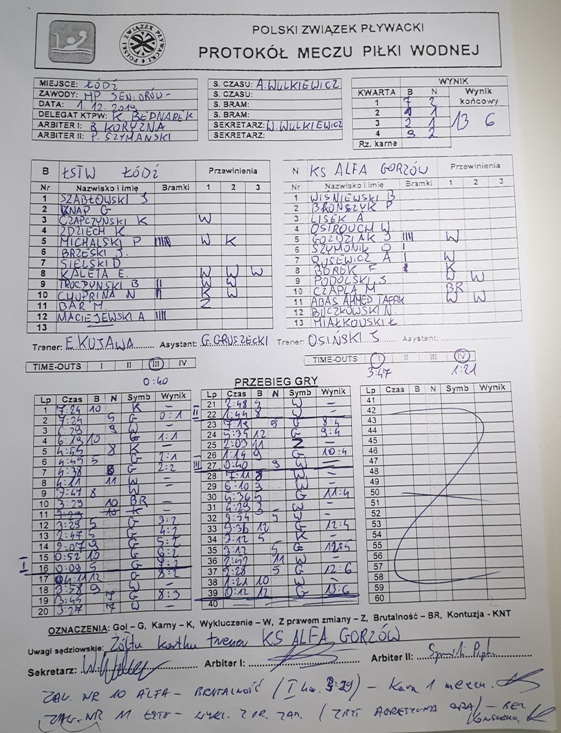 POLSKI ZWIĄZEK PŁYWACKI
PROTOKÓŁ MECZU PIŁKI WODNEJ
MIEJSCE: ŁÓDŹ
ZAWODY: MP SENIORÓW
DATA: 1.12.2019
DELEGAT KTPW: K. BEDNAREK
ARBITER I: B. KORYZNA
ARBITER II: P. SZYMAŃSKI
S. CZASU: A. WULKIEWICZ
S. CZASU:
S. BRAM:
S. BRAM:
SEKRETARZ: W. WULKIEWICZ
SEKRETARZ:
WYNIK
KWARTA B N Wynik końcowy
1 7 2
2 1
3 2 1
4 2
13 6
Rz. karne
B ŁSTW ŁÓDŹ Przewinienia
Nr Nazwisko i imię Bramki 1 2 3
1 SZABŁOWSKI S
2 KNAP G
3 CZAPCZYŃSKI K W
4 ZDZIECH K
5 MICHALSKI P W K
6 BRZESKI S
7 SIELSKI D
8 KALETA E. W W W
9 TROCZYŃSKI B K W
10 CHUPRINA N K W
11 BAR M Z
12 MACIEJEWSKI A IIII
13
N KS ALFA GORZÓW Przewinienia
Nr Nazwisko i imię Bramki 1 2 3
1 WIŚNIEWSKI B
2 BROŃSZYK P
3 LISEK A
4 OSTROUCH W
5 GOŹDZIAK S W
6 SZYMONIK O
7 A I W
8 BOREK F I K
9 PODOLSKI S W W
10 CZAPLA M BR
11 ADAS AHMED TAREK W W
12 BUCZKOWSKI N
13 MIAŁKOWSKI Ł
Trener: E. KUJAWA Asystant: G. GRUSZECKI
Trener: OSIŃSKI S Asystant:
TIME-OUTS I II III IV
0:40
TIME-OUTS I II III IV
3:47 1:21
PRZEBIEG GRY
Lp Czas B N Symb Wynik
1 7:24 10 K –
2 7:24 5 G 0:1
3 6:29 9 W –
4 6:19 10 G 1:1
5 4:55 8 K –
6 4:55 5 G 2:1
7 4:38 G 2:2
8 4:11 11 W –
9 3:47 8 W
10 3:29 10 BR –
11 3:29 10 K –
12 3:28 5 G 3:2
13 2:47 5 G 4:2
14 2:07 9 G 5:2
15 0:52 10 G 6:2
16 0:08 5 G 7:2
17 12 G 8:2
18 3:58 9 W
19 3:45 7 G 8:3
20 3:27 7 W
21 2:48 3 W
22 1:44 8 W
23 7:19 5 G 8:4
24 5:35 12 G 9:4
25 2:03 11 Z –
26 1:14 9 G 10:4
27 0:40 9 W –
28 7:11 8 W
29 6:10 9 W
30 4:36 5 G 11:4
31 3 W –
32 W
33 3:36 12 G 12:4
34 3:12 5 K –
35 3:12 5 G 12:5
36 11 W –
37 2:28 5 G 12:6
38 1:21 10 W –
39 0:12 12 G 13:6
40
41
42
43
44
45
46
47
48
49
50
51
52
53
54
55
56
57
58
59
60
OZNACZENIA: Gol – G, Karny – K, Wykluczenie – W, Z prawem zmiany – Z, Brutalność – BR, Kontuzja - KNT
Uwagi sędziowskie: Żółta kartka trener KS ALFA GORZÓW
Sekretarz: Arbiter I: Arbiter II:
ZAW. NR 10 ALFA – BRUTALNOŚĆ (I kw. 3:29) – Kara 1 meczu.
ZAW. NR 11 ŁSTW – WYKL. Z PR. ZM. (ZBYT AGRESYWNA GRA) – BEZ